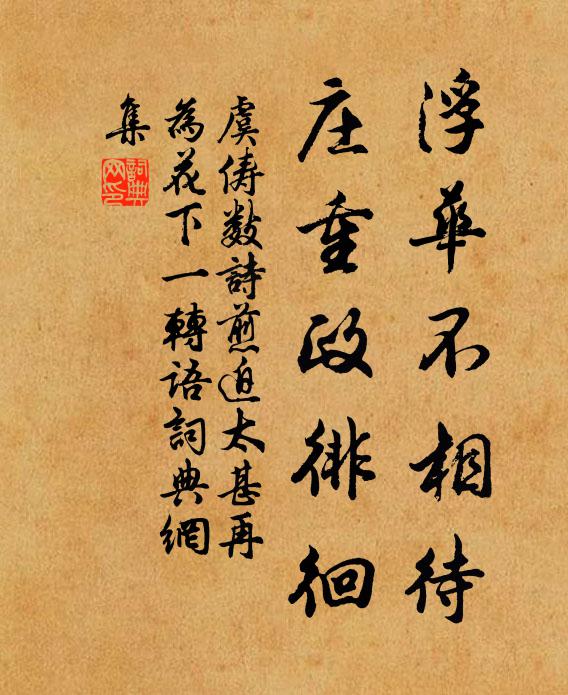 浮華不相待
庄重政徘徊
虞儔数詩煎迫太甚再
為花下一轉語詞典網
集
詞典
网印